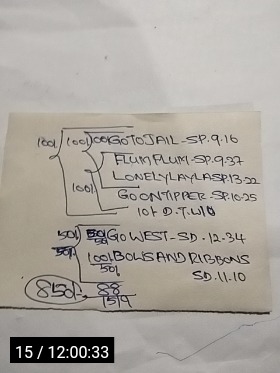 100/ 100/ 100/ GO TO JAIL-SP.9.16
FLUM FLUM-SP.9-37
LONELY LAYLA SP.13-22
100/ GO ON TIPPER-SP.10-25
10/ D.T.W10
50/ 50/ GO WEST-SD.12-34
100/ BOWS AND RIBBONS
50/ SD.11.10
850/- 88
15/9
15 / 12:00:33